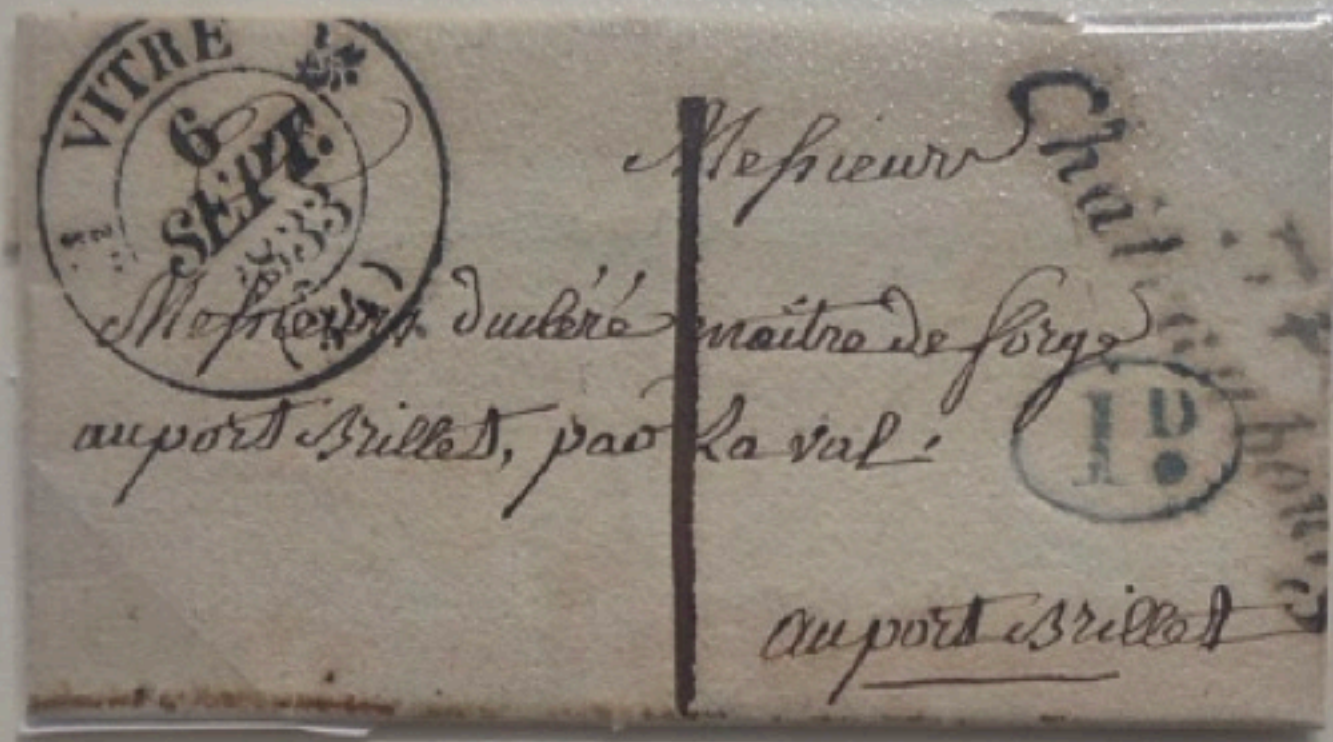 VITRE
6
SEPT.
1833
(34)
Messieurs
Messieurs dubéré maître de forge
au port Brillet, par La val.
1D
au port Brillet